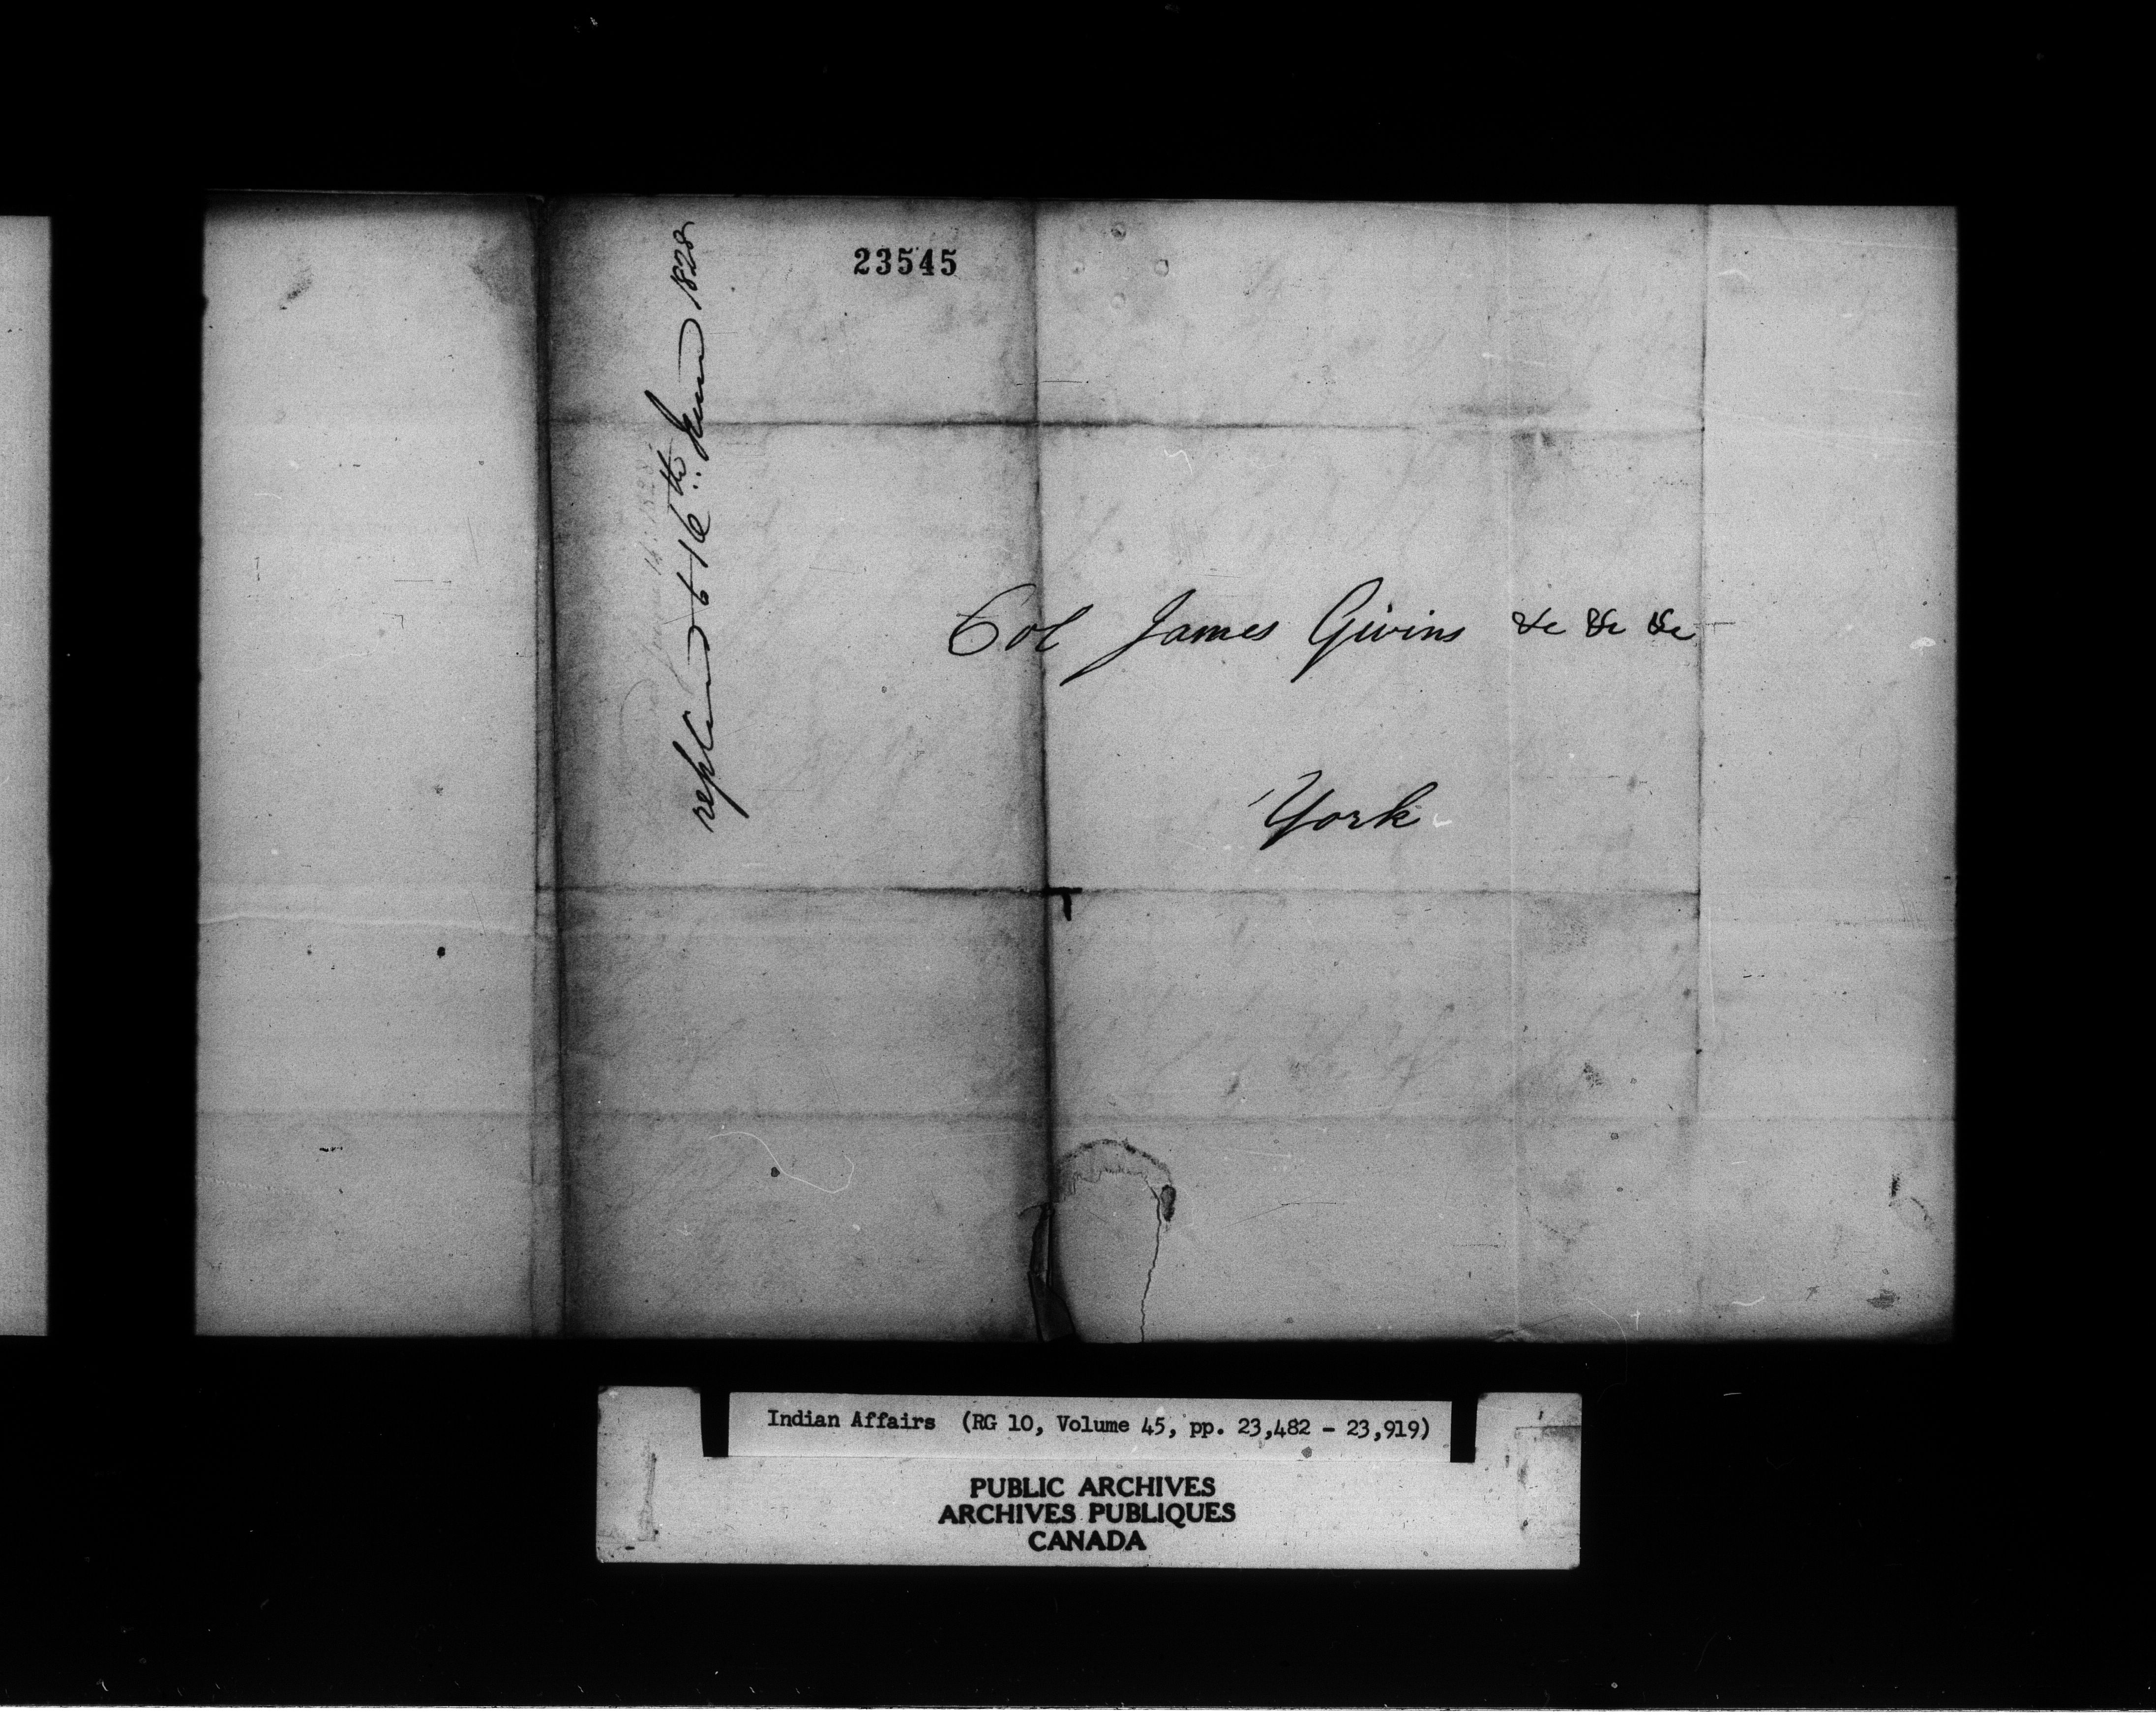 23545
replied to 16th. June 1828
Col James Givins &c &c &c
York
Indian Affairs (RG 10, Volume 45, pp. 23,482 - 23,919)
PUBLIC ARCHIVES
ARCHIVES PUBLIQUES
CANADA